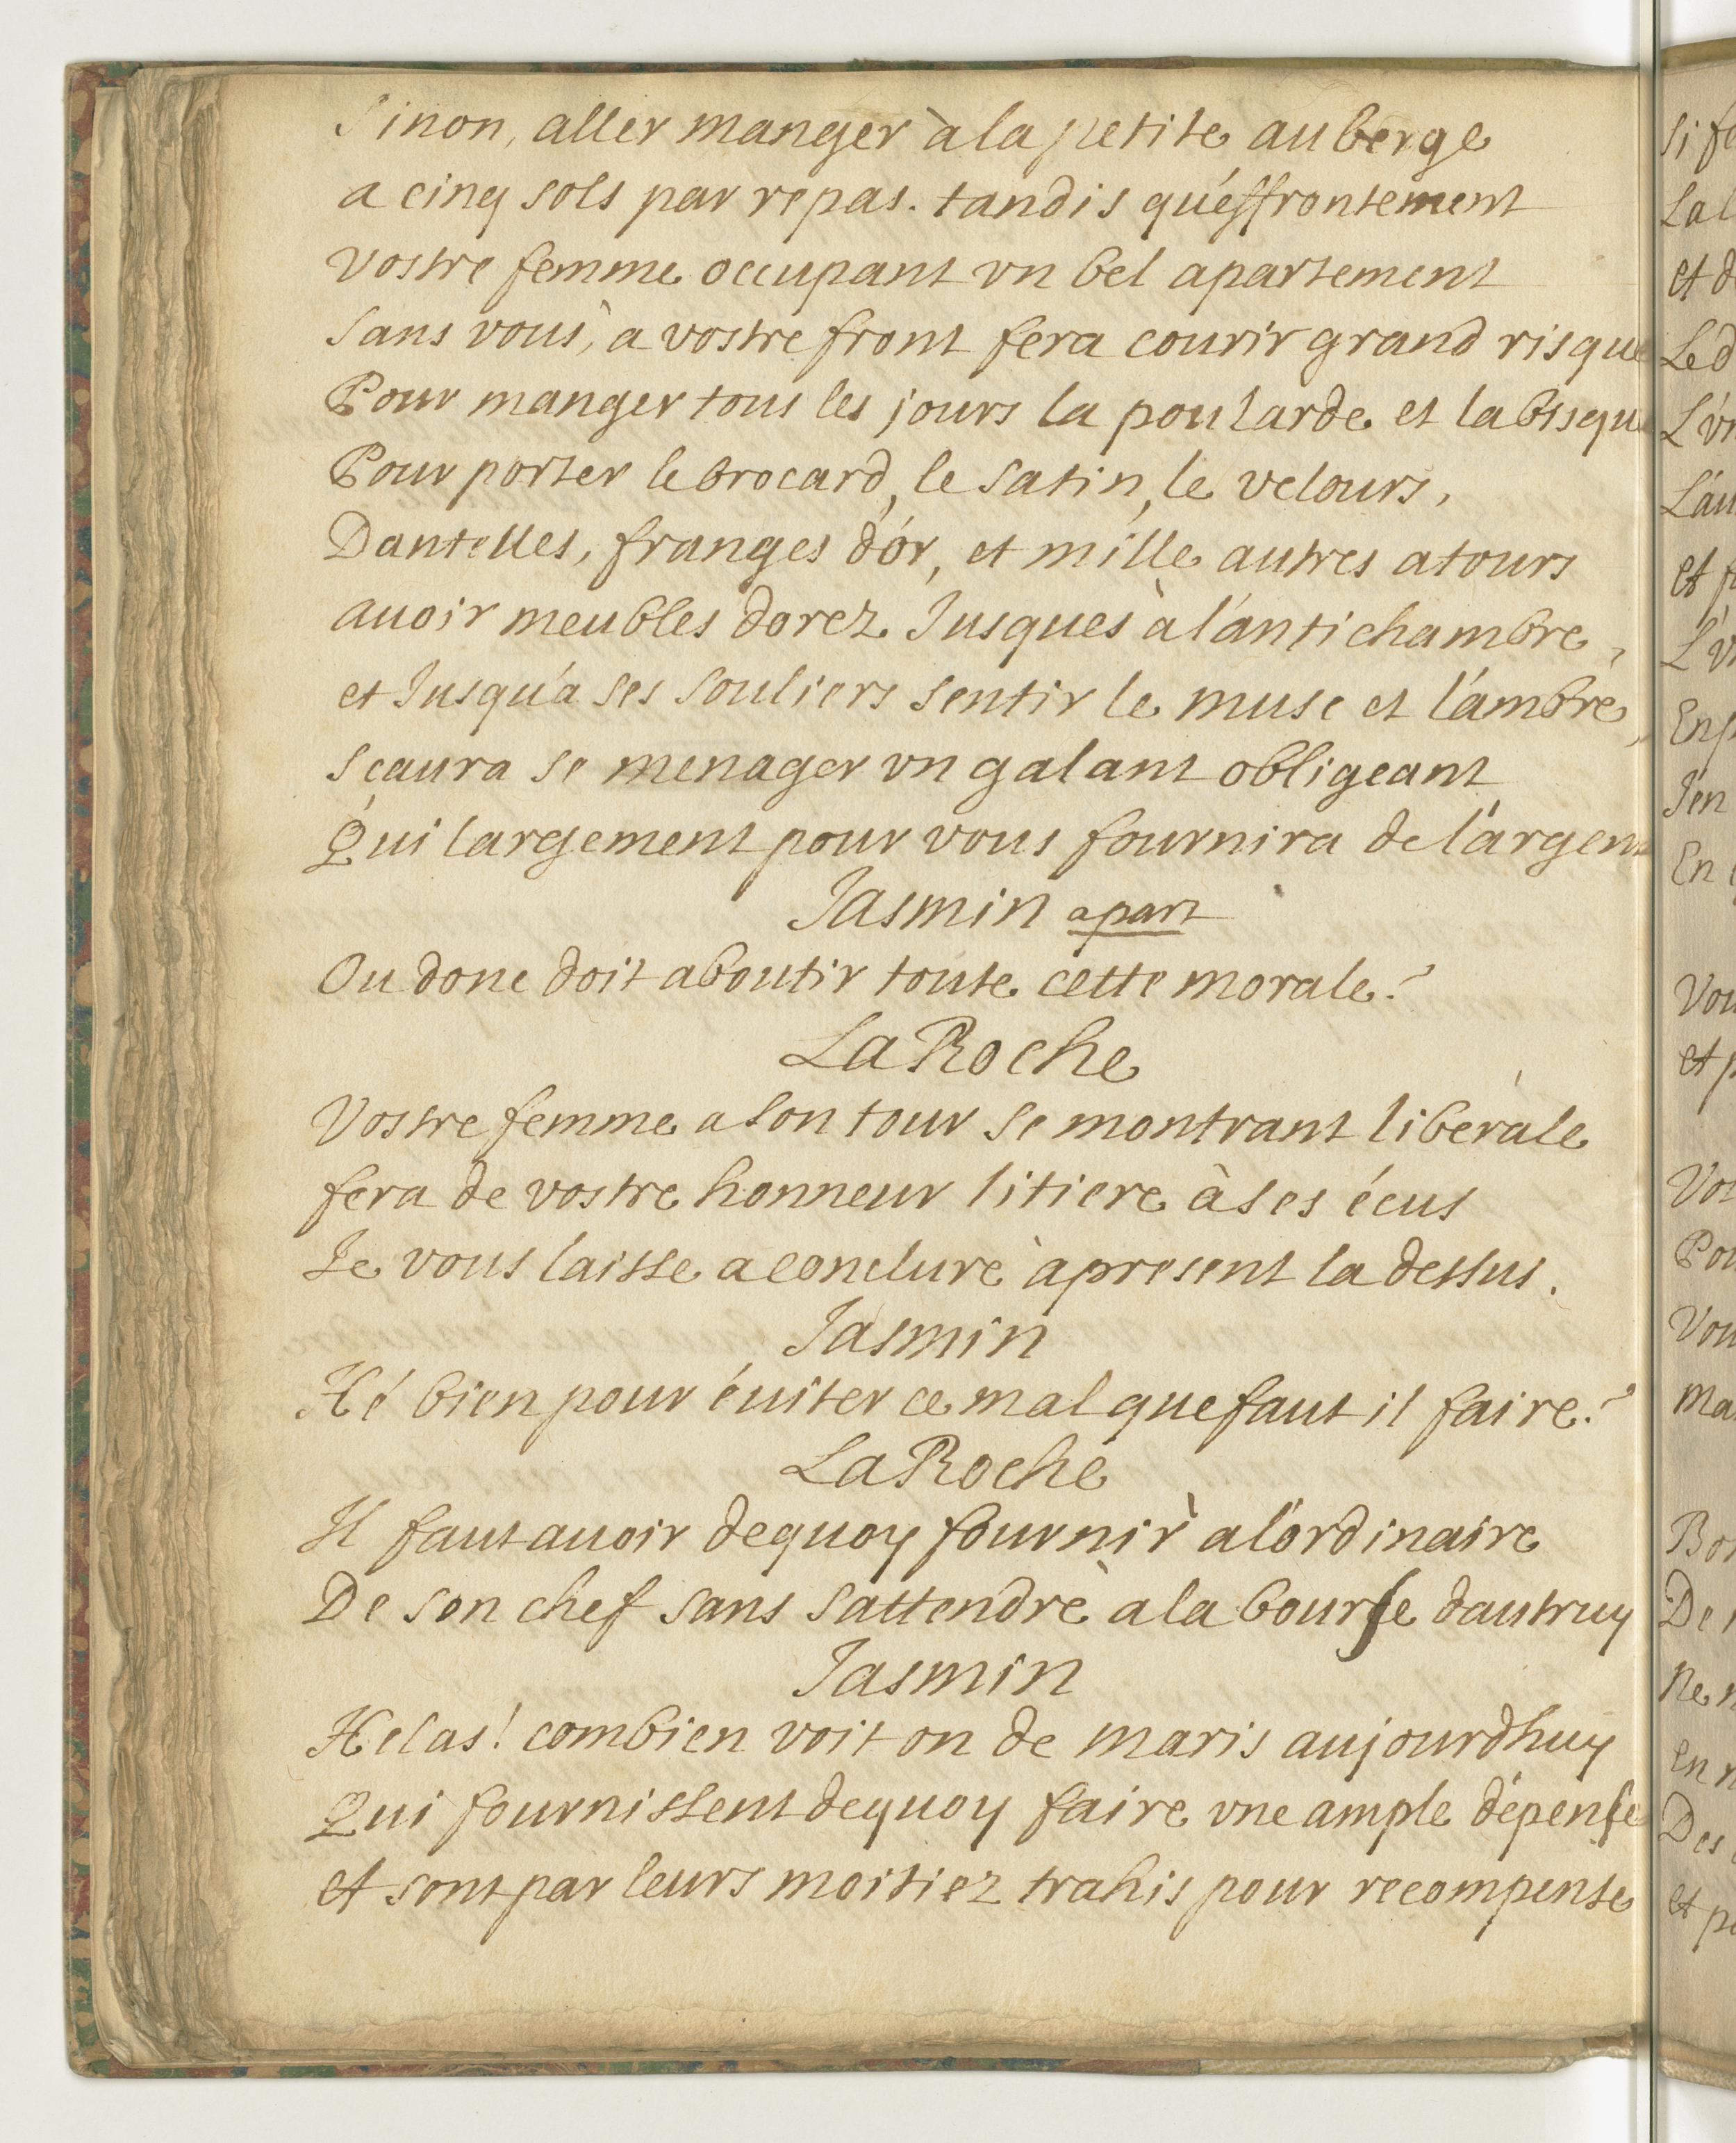 Sinon, aller manger à la petite auberge
a cinq sols par repas. tandis qu'éffrontement
Vostre femme occupant vn bel apartement
Sans vous, a vostre front fera courir grand risque
Pour manger tous les jours la poularde et la bisque
Pour porter le brocard, le satin, le velours,
Dantelles, franges d'or, et mille autres atours
auoir meubles dorez Jusques à l'antichambre,
et Jusqu'a ses souliers sentir le musc et l'ambre,
sçaura se menager vn galant obligeant
Qui largement pour vous fournira de l'argent
Jasmin apart
Ou donc doit aboutir toute cette morale?
La Roche
Vostre femme a son tour se montrant liberale
fera de vostre honneur litiere à ses écus
Je vous laisse a conclure àpresent la dessus.
Jasmin
Hé bien pour éuiter ce mal que faut il faire?
La Roche
Il faut auoir dequoy fournir a l'ordinaire
De son chef sans sattendre a la bourse dautruy
Jasmin
Helas! combien voit on de maris aujourdhuy
Qui fournissent dequoy faire vne ample dépense
et sont par leurs moitiez trahis pour recompense
si
La
et
Le
L'
L'au
et
L'
En
J'en
En
Vou
et
Vou
Pou
Vou
Ma
Bon
De
Ne
en
Des
et